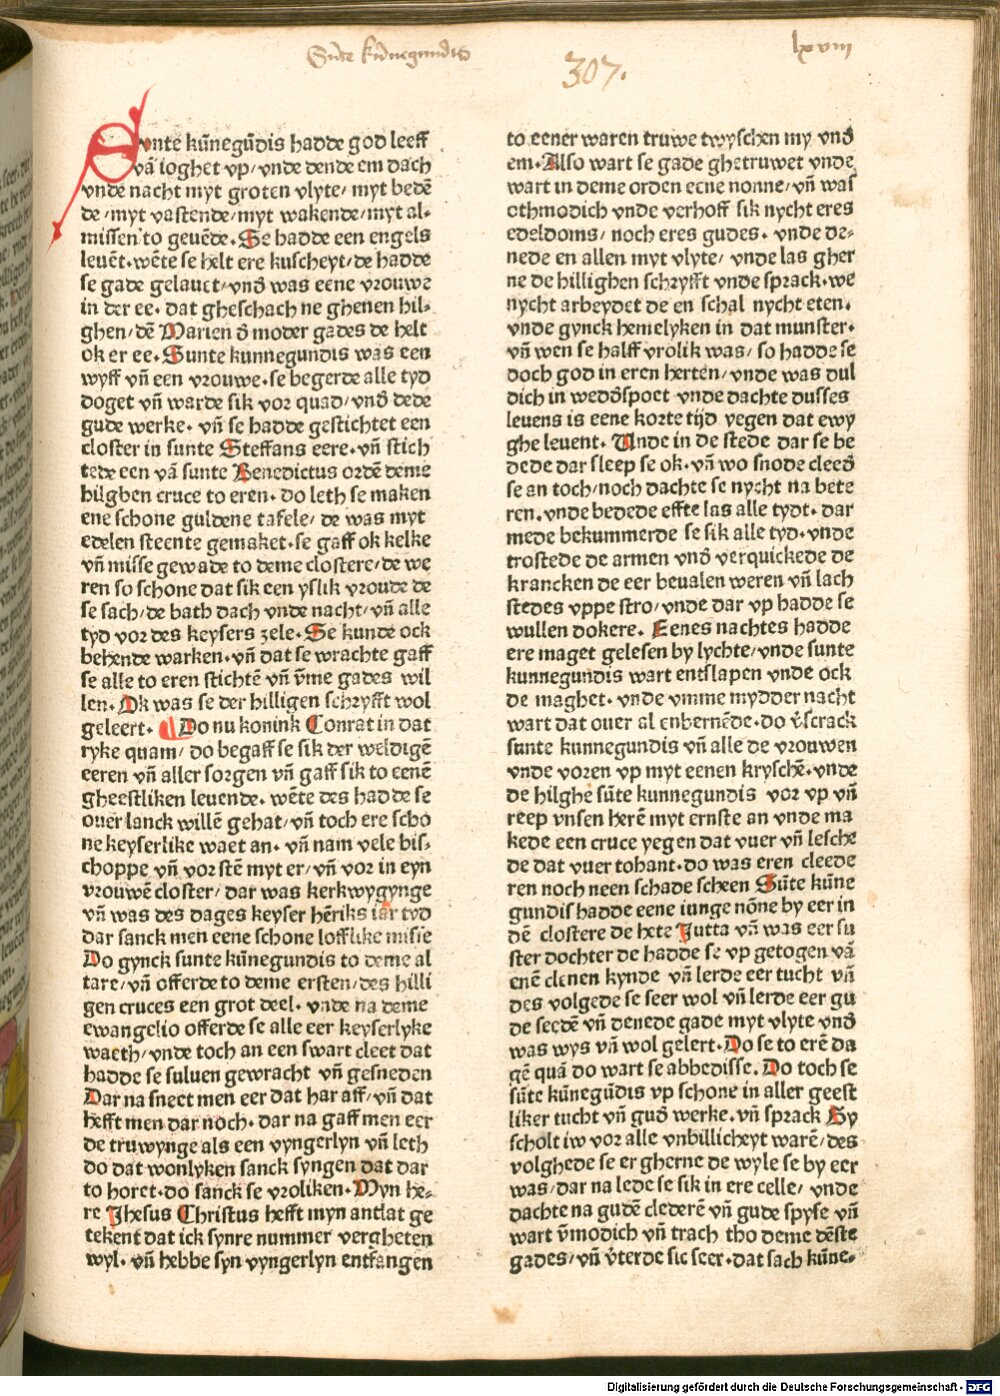 Sūte kūnegundis
lxviii
307.
Sunte kūnegūdis hadde god leeff
vā ioghet vp/ vnde dende em dach
vnde nacht myt groten vlyte/ myt bedē
de/myt vastende/myt wakende/myt al⸗
missen to geuēde. Se hadde een engels
leuēt. wēte se helt ere kuscheyt/de hadde
se gade gelauet/vnd̄ was eene vrouwe
in der ee. dat gheschach ne ghenen hil⸗
ghen/dē Marien d̄ moder gades de helt
ok er ee. Sunte kunnegundis was een
wyff vn̄ een vrouwe. se begerde alle tyd
doget vn̄ warde sik vor quad/vnd̄ dede
gude werke. vn̄ se hadde gestichtet een
closter in sunte Steffans eere. vn̄ stich
tede een vā sunte Benedictus ordē deme
hilghen cruce to eren. do leth se maken
ene schone guldene tafele/ de was myt
edelen steente gemaket. se gaff ok kelke
vn̄ misse gewade to deme clostere/de we
ren so schone dat sik een yslik vroude de
se sach/de bath dach vnde nacht/vn̄ alle
tyd vor des keysers zele. Se kunde ock
behende warken. vn̄ dat se wrachte gaff
se alle to eren stichtē vn̄ v̄me gades wil
len. Ok was se der hilligen schryfft wol
geleert. ¶ Do nu konink Conrat in dat
ryke quam/ do begaff se sik der weldigē
eeren vn̄ aller sorgen vn̄ gaff sik to eenē
gheestliken leuende. wēte des hadde se
ouer lanck willē gehat/vn̄ toch ere scho
ne keyserlike waet an. vn̄ nam vele bis⸗
choppe vn̄ vorstē myt er/vn̄ vor in eyn
vrouwē closter/ dar was kerkwygynge
vn̄ was des dages keyser hēriks iar tyd
dar sanck men eene schone lofflike misse
Do gynck sunte kūnegundis to deme al
tare/vn̄ offerde to deme ersten/des hilli
gen cruces een grot deel. vnde na deme
ewangelio offerde se alle eer keyserlyke
waeth/vnde toch an een swart cleet dat
hadde se suluen gewracht vn̄ gesneden
Dar na snect men eer dat har aff/vn̄ dat
hefft men dar noch. dar na gaff men eer
de truwynge als een vyngerlyn vn̄ leth
do dat wonlyken sanck syngen dat dar
to horet. do sanck se vroliken. Myn he⸗
re Jhesus Christus hefft myn antlat ge
tekent dat ick synre nummer vergheten
wyl. vn̄ hebbe syn vyngerlyn entfangen
to eener waren truwe twyschen my vnd̄
em. Also wart se gade ghetruwet vnde
wart in deme orden eene nonne/ vn̄ was
othmodich vnde verhoff sik nycht eres
edeldoms/ noch eres gudes. vnde de⸗
nede en allen myt vlyte/ vnde las gher
ne de hillighen schryfft vnde sprack. we
nycht arbeydet de en schal nycht eten.
vnde gynck hemelyken in dat munster.
vn̄ wen se halff vrolik was/ so hadde se
doch god in eren herten/vnde was dul
dich in wedd̄spoet vnde dachte dusses
leuens is eene korte tijd yegen dat ewy
ghe leuent. Unde in de stede dar se be
dede dar sleep se ok. vn̄ wo snode cleed̄
se an toch/noch dachte se nycht na bete
ren. vnde bedede effte las alle tydt. dar
mede bekummerde se sik alle tyd. vnde
trostede de armen vnd̄ verquickede de
krancken de eer beualen weren vn̄ lach
stedes vppe stro/vnde dar vp hadde se
wullen dokere. Eenes nachtes hadde
ere maget gelesen by lychte/vnde sunte
kunnegundis wart entslapen vnde ock
de maghet. vnde vmme mydder nacht
wart dat ouer al enbernēde. do v̄scrack
sunte kunnegundis vn̄ alle de vrouwen
vnde voren vp myt eenen kryschē. vnde
de hilghe sūte kunnegundis vor vp vn̄
reep vnsen herē myt ernste an vnde ma
kede een cruce yegen dat vuer vn̄ lesche
de dat vuer tohant. do was eren cleede
ren noch neen schade scheen Sūte kūne
gundis hadde eene iunge nōne by eer in
dē clostere de hete Jutta vā was eer su
ster dochter de hadde se vp getogen vā
enē clenen kynde vn̄ lerde eer tucht vn̄
des volgede se seer wol vn̄ lerde eer gu
de seedē vn̄ denede gade myt vlyte vnd̄
was wys vn̄ wol gelert. Do se to erē da
gē quā do wart se abbedisse. Do toch se
sūte kūnegūdis vp schone in aller geest
liker tucht vn̄ gud̄ werke. vn̄ sprack Gy
scholt iw vor alle vnbillicheyt warē/des
volghede se er gherne de wyle se by eer
was/dar na lede se sik in ere celle/ vnde
dachte na gudē clederē vn̄ gude spyse vn̄
wart v̄modich vn̄ trach tho deme dēste
gades/vn̄ v̄terde sic seer. dat sach kūne⸗
Digitalisierung gefördert durch die Deutsche Forschungsgemeinschaft - DFG